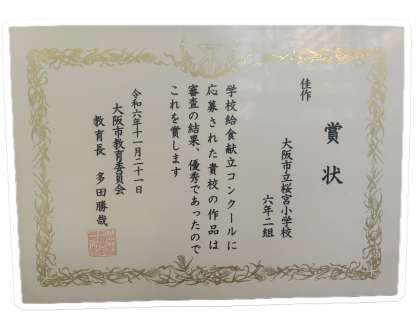 賞状
佳作
大阪市立桜宮小学校
六年二組
学校給食献立コンクールに
応募された貴校の作品は
審査の結果、優秀であったので
これを賞します
令和六年十一月二十一日
大阪市教育委員会
教育長 多田勝哉